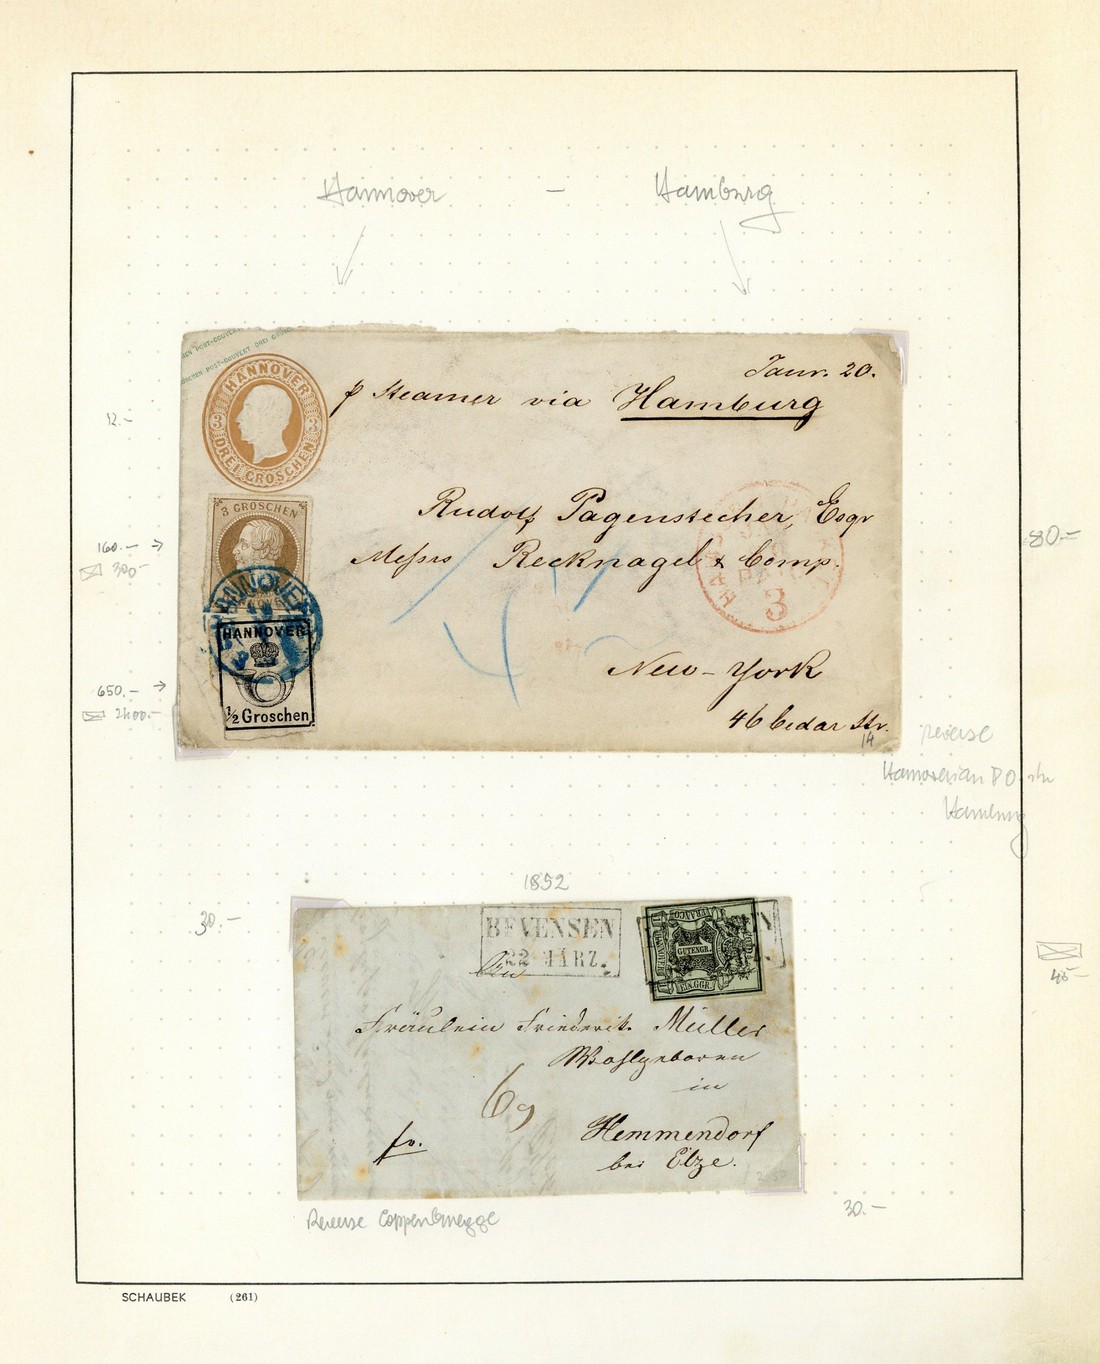 Hannover - Hamburg
HANNOVER
DREI GROSCHEN
3 3
Janr. 20.
p Steamer via Hamburg
12.-
3 GROSCHEN
Rudolf Pagenstecher, Esqr
Messrs Recknagel & Comp.
3
160.-
300-
80-
HANNOVER
HANNOVER
1/2 Groschen
New-York
46 Cedar Str.
14
650.-
2400.-
reverse
Hanoverian P O
Hamburg
1852
30.-
BEVENSEN
22 MÄRZ.
FRANCO
GUTENGR.
HANNOVER
EIN.GGR.
An
Fräulein Friederike Müller
Wohlgeboren
in
Hemmendorf
bei Elze.
fr.
45-
30.-
Reverse Coppenbrügge
SCHAUBEK (261)